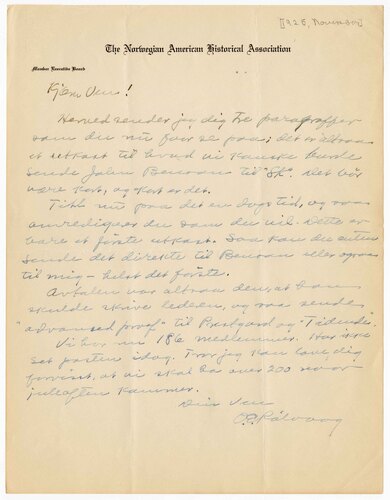 [1925, November]
The Norwegian American Historical Association
Member Executive Board
Kjære Ven!
Herved sender jeg dig tre paragraffer
som du nu faar se paa; det er altsaa
et utkast til hvad vi kanske burde
sende John Benson til "Sk". Det bør
være kort, og kort er det.
Titt nu paa det en dags tid, og saa
omredigerer du som du vil. Dette er
bare et første utkast. Saa kan du enten
sende det direkte til Benson eller ogsaa
til mig – helst det første.
Avtalen var altsaa den, at han
skulde skrive lederen, og saa sende
"advansed proof" til Prestgard og "Tidende".
Vi har nu 186 medlemmer. Har ikke
set posten idag. Tror jeg kan love dig
forvisst, at vi skal ha over 200 naar
juleaften kommer.
Din Ven
O.E. Rölvaag